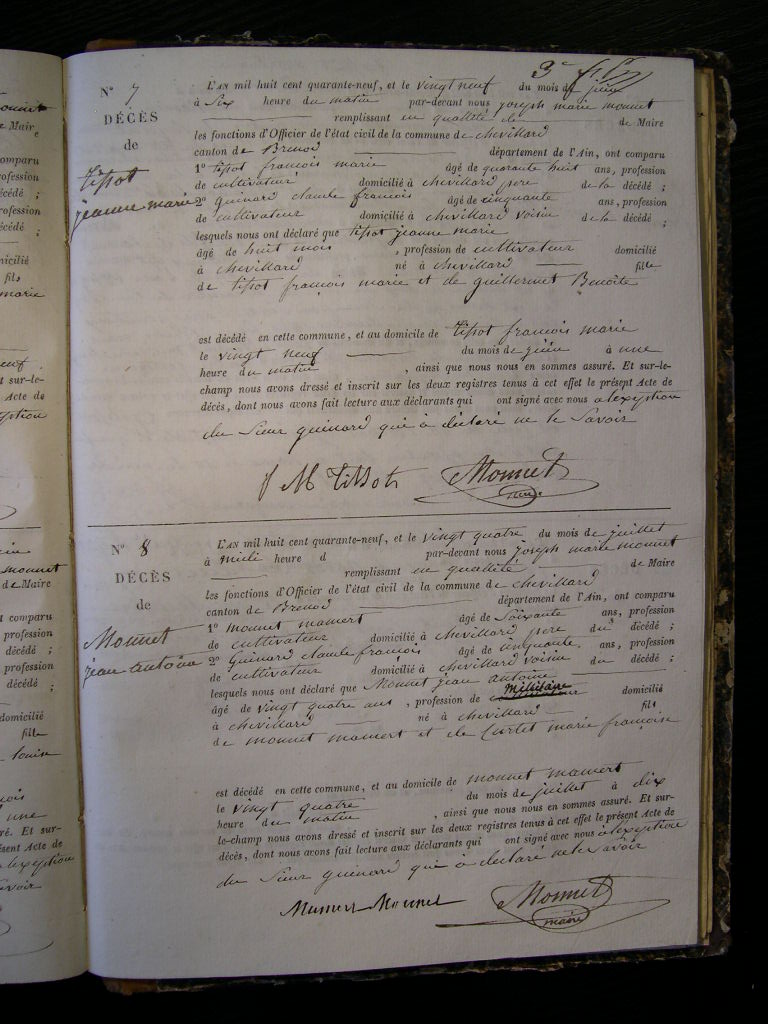 3e
N° 7
DÉCÈS
de
tissot
jeanne marie
L'AN mil huit cent quarante-neuf, et le vingt neuf du mois de juin
à Six heure du matin par-devant nous joseph marie monnet
remplissant en quallité de de Maire
les fonctions d'Officier de l'état civil de la commune de chevillard
canton de Brenod département de l'Ain, ont comparu
1° tissot francois marie âgé de quarante huit ans, profession
de cultivateur domicilié à chevillard pere de la décédé ;
2° guinard claude francois âgé de cinquante ans, profession
de cultivateur domicilié à chevillard voisin de la décédé ;
lesquels nous ont déclaré que tissot jeanne marie
âgé de huit mois , profession de cultivateur domicilié
à chevillard né à chevillard fille
de tissot francois marie et de guillermet Benoite
est décédé en cette commune, et au domicile de tissot francois marie
le vingt neuf du mois de juin à une
heure du matin , ainsi que nous nous en sommes assuré. Et sur-le-
champ nous avons dressé et inscrit sur les deux registres tenus à cet effet le présent Acte de
décès, dont nous avons fait lecture aux déclarants qui ont signé avec nous a lexeption
du Sieur guinard qui à déclaré ne le Savoir
f M tissot Monnet
maire
N° 8
DÉCÈS
de
Monnet
jean antoine
L'AN mil huit cent quarante-neuf, et le vingt quatre du mois de juillet
à midi heure d par-devant nous joseph marie monnet
remplissant en quallité de Maire
les fonctions d'Officier de l'état civil de la commune de chevillard
canton de Brenod département de l'Ain, ont comparu
1° monnet mamert âgé de Soixante ans, profession
de cultivateur domicilié à chevillard pere du décédé ;
2° guinard claude francois âgé de cinquante ans, profession
de cultivateur domicilié à chevillard voisin du décédé ;
lesquels nous ont déclaré que Monnet jean antoine
âgé de vingt quatre ans , profession de millitaire domicilié
à chevillard né à chevillard fils
de monnet mamert et de Curtet marie françoise
est décédé en cette commune, et au domicile de monnet mamert
le vingt quatre du mois de juillet à dix
heure du matin , ainsi que nous nous en sommes assuré. Et sur-
le-champ nous avons dressé et inscrit sur les deux registres tenus à cet effet le présent Acte de
décès, dont nous avons fait lecture aux déclarants qui ont signé avec nous a lexeption
du Sieur guinard qui à declaré ne le Savoir
Mamert Monnet Monnet
maire